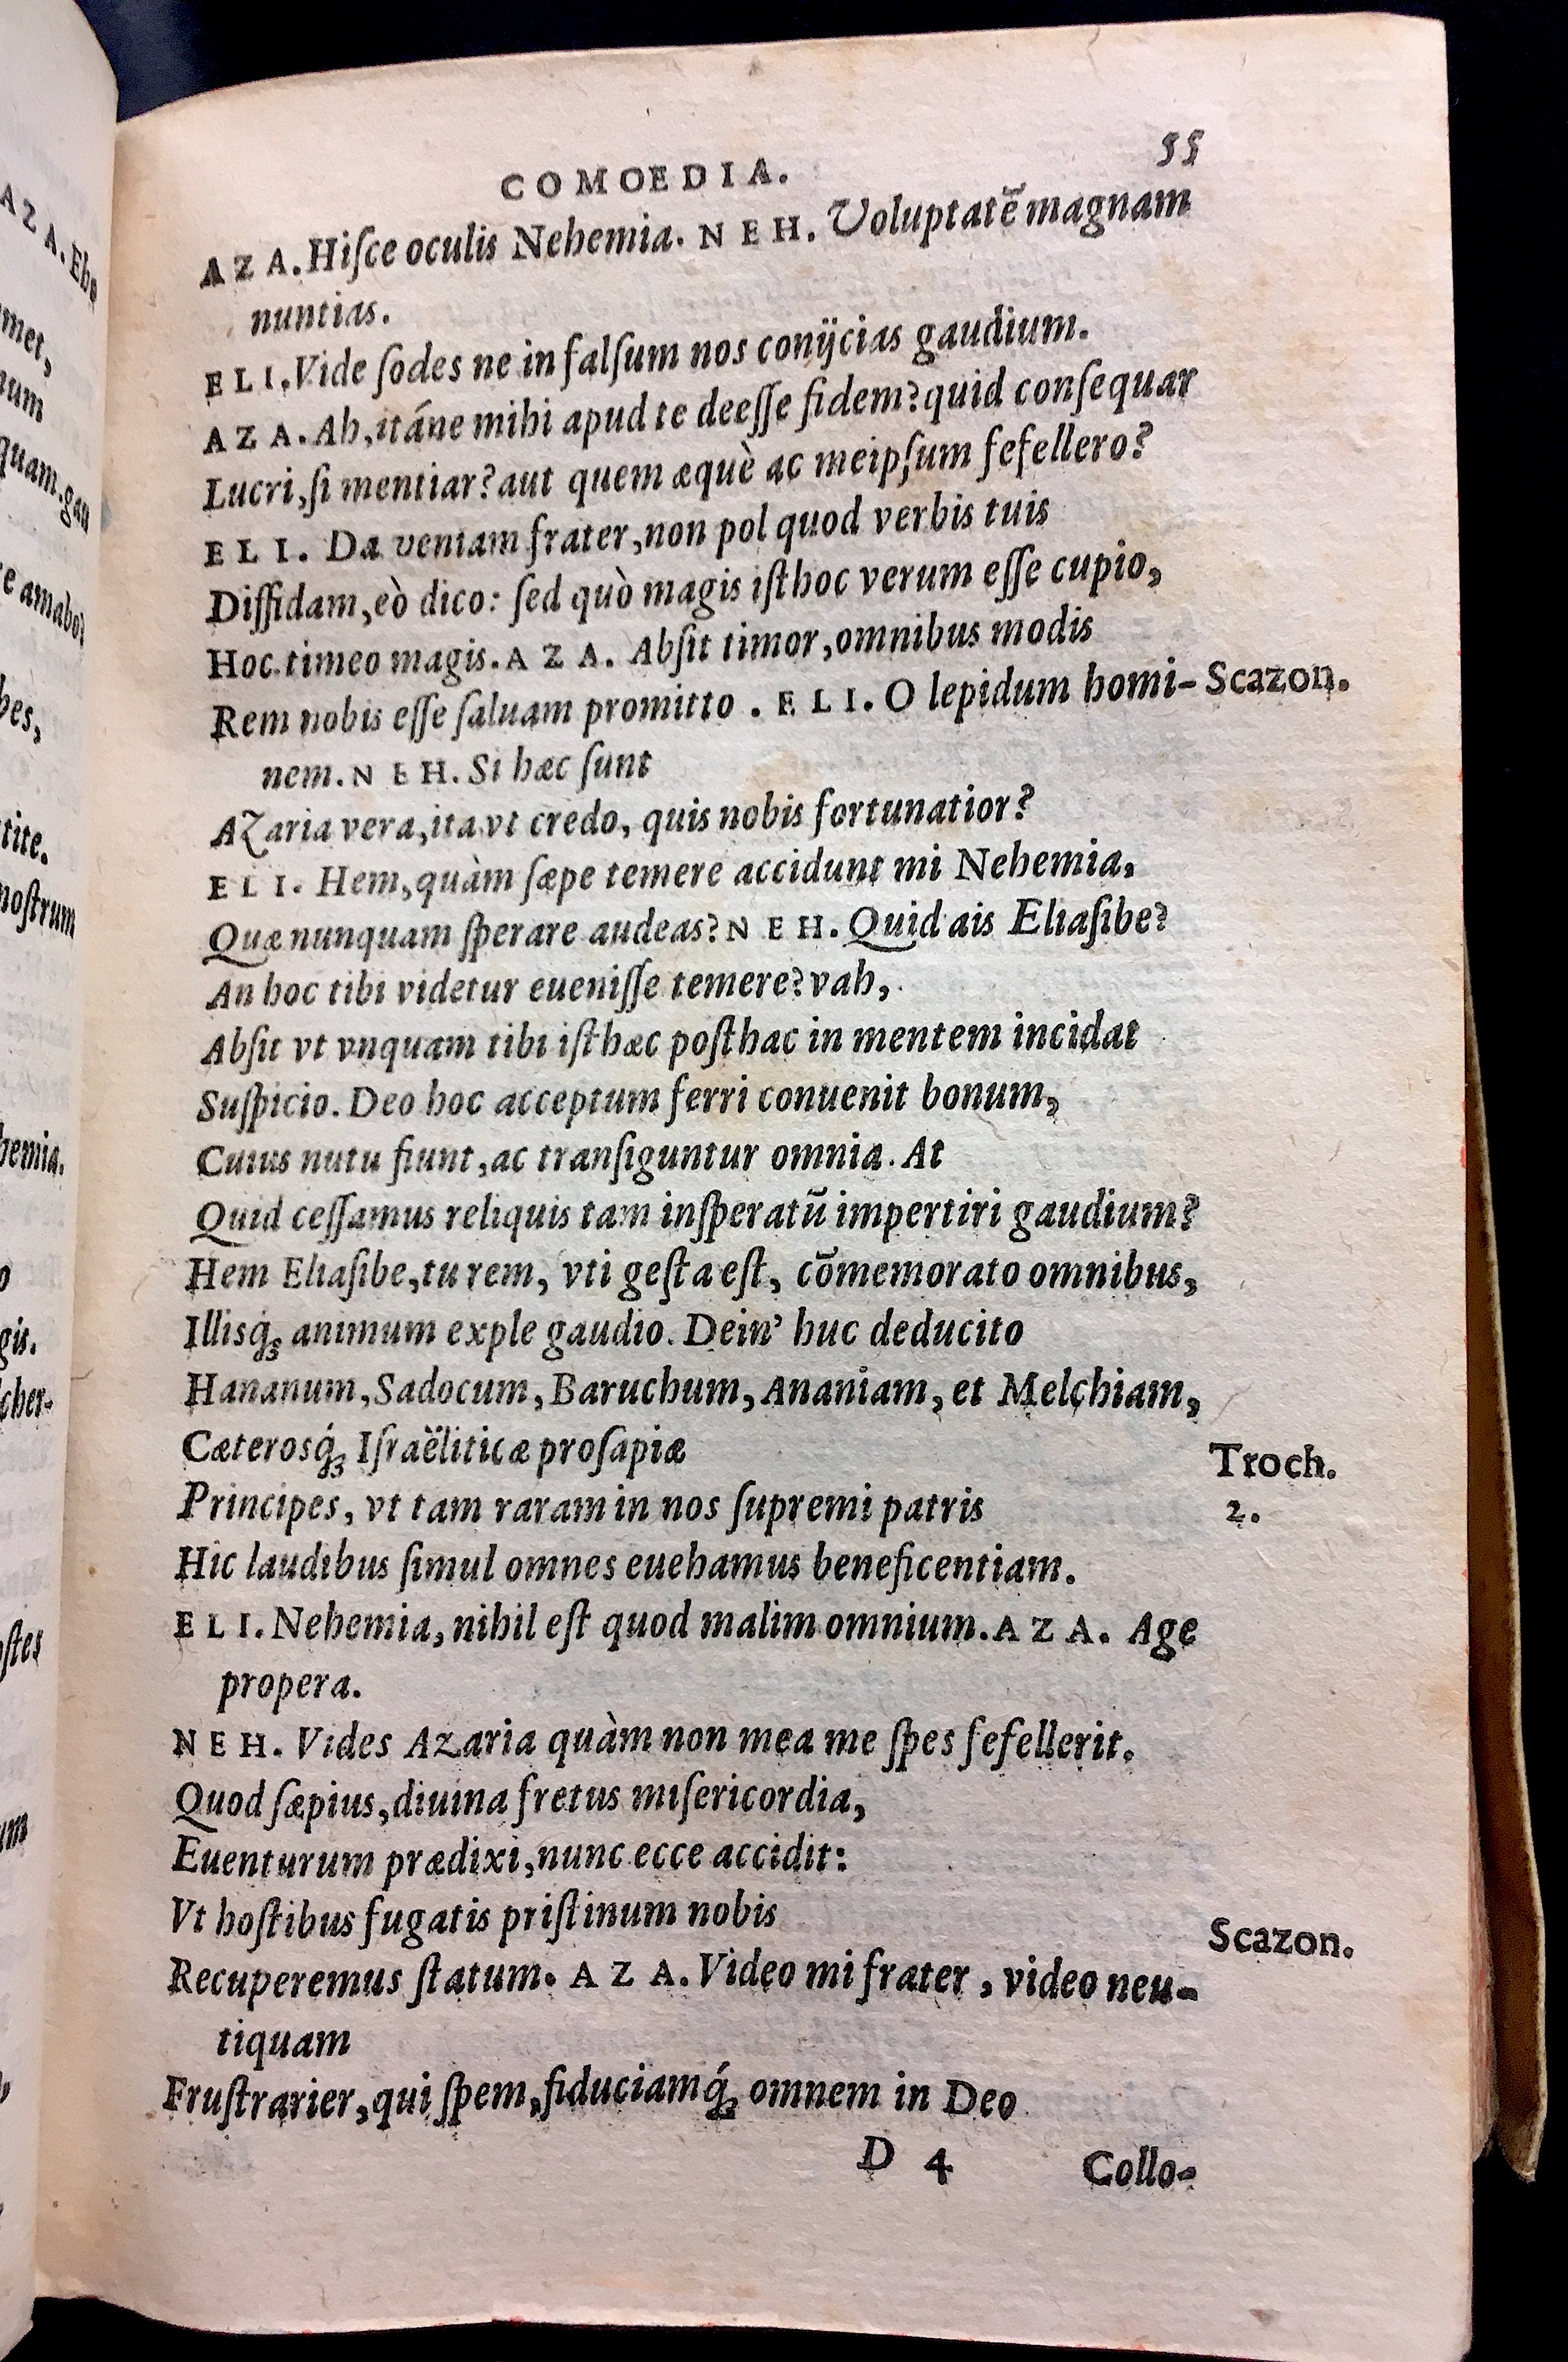 COMOEDIA. 55
AZA. Hiſce oculis Nehemia. NEH. Voluptatē magnam
nuntias.
ELI. Vide ſodes ne in falſum nos conijcias gaudium.
AZA. Ah, itáne mihi apud te deeſſe fidem? quid conſequar
Lucri, ſi mentiar? aut quem æquè ac meipſum fefellero?
ELI. Da veniam frater, non pol quod verbis tuis
Diffidam, eò dico: ſed quò magis iſthoc verum eſſe cupio,
Hoc timeo magis. AZA. Abſit timor, omnibus modis
Rem nobis eſſe ſaluam promitto. ELI. O lepidum homi- Scazon.
nem. NEH. Si hæc ſunt
Azaria vera, ita vt credo, quis nobis fortunatior?
ELI. Hem, quàm ſæpe temere accidunt mi Nehemia,
Quæ nunquam ſperare audeas? NEH. Quid ais Eliaſibe?
An hoc tibi videtur eueniſſe temere? vah,
Abſit vt vnquam tibi iſthæc poſthac in mentem incidat
Suſpicio. Deo hoc acceptum ferri conuenit bonum,
Cuius nutu fiunt, ac tranſiguntur omnia. At
Quid ceſſamus reliquis tam inſperatū impertiri gaudium?
Hem Eliaſibe, tu rem, vti geſta eſt, cōmemorato omnibus,
Illisq́ꝫ animum exple gaudio. Dein' huc deducito
Hananum, Sadocum, Baruchum, Ananiam, et Melchiam,
Cæterosq́ꝫ Iſraëliticæ proſapiæ Troch.
Principes, vt tam raram in nos ſupremi patris 2.
Hic laudibus ſimul omnes euehamus beneficentiam.
ELI. Nehemia, nihil eſt quod malim omnium. AZA. Age
propera.
NEH. Vides Azaria quàm non mea me ſpes fefellerit.
Quod ſæpius, diuina fretus miſericordia,
Euenturum prædixi, nunc ecce accidit:
Vt hoſtibus fugatis priſtinum nobis Scazon.
Recuperemus ſtatum. AZA. Video mi frater, video neu-
tiquam
Fruſtrarier, qui ſpem, fiduciamq́ꝫ omnem in Deo
D 4 Collo-